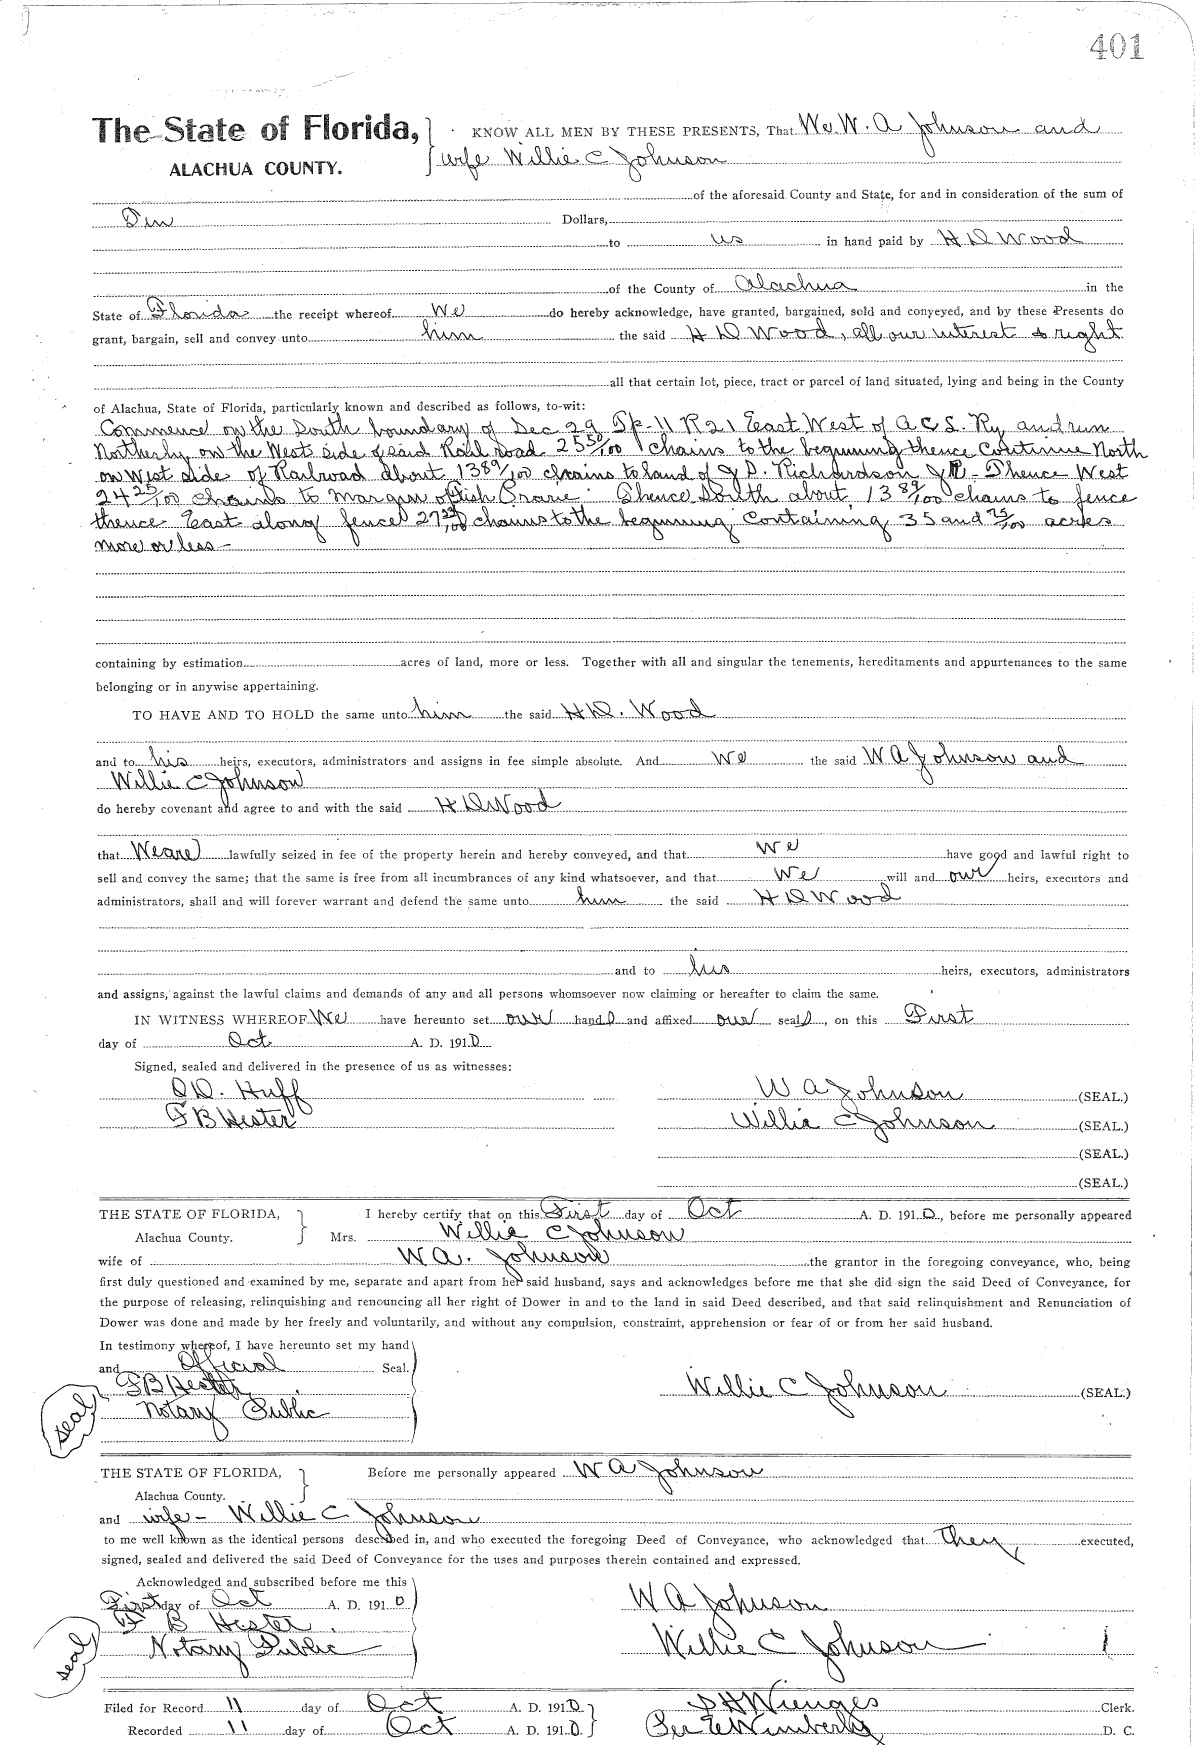 401
The State of Florida, KNOW ALL MEN BY THESE PRESENTS, That We, W. A Johnson and
ALACHUA COUNTY. wife Willie C Johnson
of the aforesaid County and State, for and in consideration of the sum of
Ten Dollars,
to us in hand paid by H D Wood
of the County of Alachua in the
State of Florida the receipt whereof We do hereby acknowledge, have granted, bargained, sold and conveyed, and by these Presents do
grant, bargain, sell and convey unto him the said H D Wood, all our interest & right
all that certain lot, piece, tract or parcel of land situated, lying and being in the County
of Alachua, State of Florida, particularly known and described as follows, to-wit:
Commence on the South boundary of Sec 29 Tp-11 R 21 East West of A C L Ry and run
Northerly on the West side of said Rail road 25 50/100 chains to the beginning thence Continue North
on West side of Railroad about 13 89/100 chains to land of J D. Richardson JR- Thence West
24 25/100 chains to margin of Fish Prarie. Thence South about 13 89/100 chains to fence
thence East along fence 27 chains to the beginning Containing 35 and 75/100 acres
more or less-
containing by estimation acres of land, more or less. Together with all and singular the tenements, hereditaments and appurtenances to the same
belonging or in anywise appertaining.
TO HAVE AND TO HOLD the same unto him the said H D. Wood
and to his heirs, executors, administrators and assigns in fee simple absolute. And We the said W A Johnson and
Willie C Johnson
do hereby covenant and agree to and with the said H D Wood
that We are lawfully seized in fee of the property herein and hereby conveyed, and that We have good and lawful right to
sell and convey the same; that the same is free from all incumbrances of any kind whatsoever, and that We will and our heirs, executors and
administrators, shall and will forever warrant and defend the same unto him the said H D Wood
and to his heirs, executors, administrators
and assigns, against the lawful claims and demands of any and all persons whomsoever now claiming or hereafter to claim the same.
IN WITNESS WHEREOF We have hereunto set our hands and affixed our seals, on this First
day of Oct A. D. 1910
Signed, sealed and delivered in the presence of us as witnesses:
O D. Huff W A Johnson (SEAL.)
F B Hester Willie C Johnson (SEAL.)
(SEAL.)
(SEAL.)
THE STATE OF FLORIDA, I hereby certify that on this First day of Oct A. D. 1910, before me personally appeared
Alachua County. Mrs. Willie C Johnson
wife of W A. Johnson the grantor in the foregoing conveyance, who, being
first duly questioned and examined by me, separate and apart from her said husband, says and acknowledges before me that she did sign the said Deed of Conveyance, for
the purpose of releasing, relinquishing and renouncing all her right of Dower in and to the land in said Deed described, and that said relinquishment and Renunciation of
Dower was done and made by her freely and voluntarily, and without any compulsion, constraint, apprehension or fear of or from her said husband.
In testimony whereof, I have hereunto set my hand
and Official Seal.
F B Hester Willie C Johnson (SEAL.)
seal Notary Public
THE STATE OF FLORIDA, Before me personally appeared W A Johnson
Alachua County.
and wife- Willie C Johnson
to me well known as the identical persons described in, and who executed the foregoing Deed of Conveyance, who acknowledged that They executed,
signed, sealed and delivered the said Deed of Conveyance for the uses and purposes therein contained and expressed.
Acknowledged and subscribed before me this
First day of Oct A. D. 1910 W A Johnson
F B Hester
seal Notary Public Willie C Johnson
Filed for Record 11 day of Oct A. D. 1910 S H Wienges Clerk.
Recorded 11 day of Oct A. D. 1910. Per E Wimberly D. C.